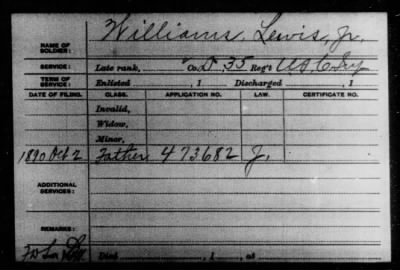 Williams, Lewis, Jr.
NAME OF SOLDIER:
SERVICE: Late rank, Co. D, 35 Reg't U.S.C. Inf
TERM OF SERVICE: Enlisted 1 Discharged , 1
DATE OF FILING. CLASS. APPLICATION NO. LAW. CERTIFICATE NO.
Invalid,
Widow,
Minor,
1890 Oct 2 Father 473682 J.
ADDITIONAL SERVICES:
REMARKS:
Died , 1 , at